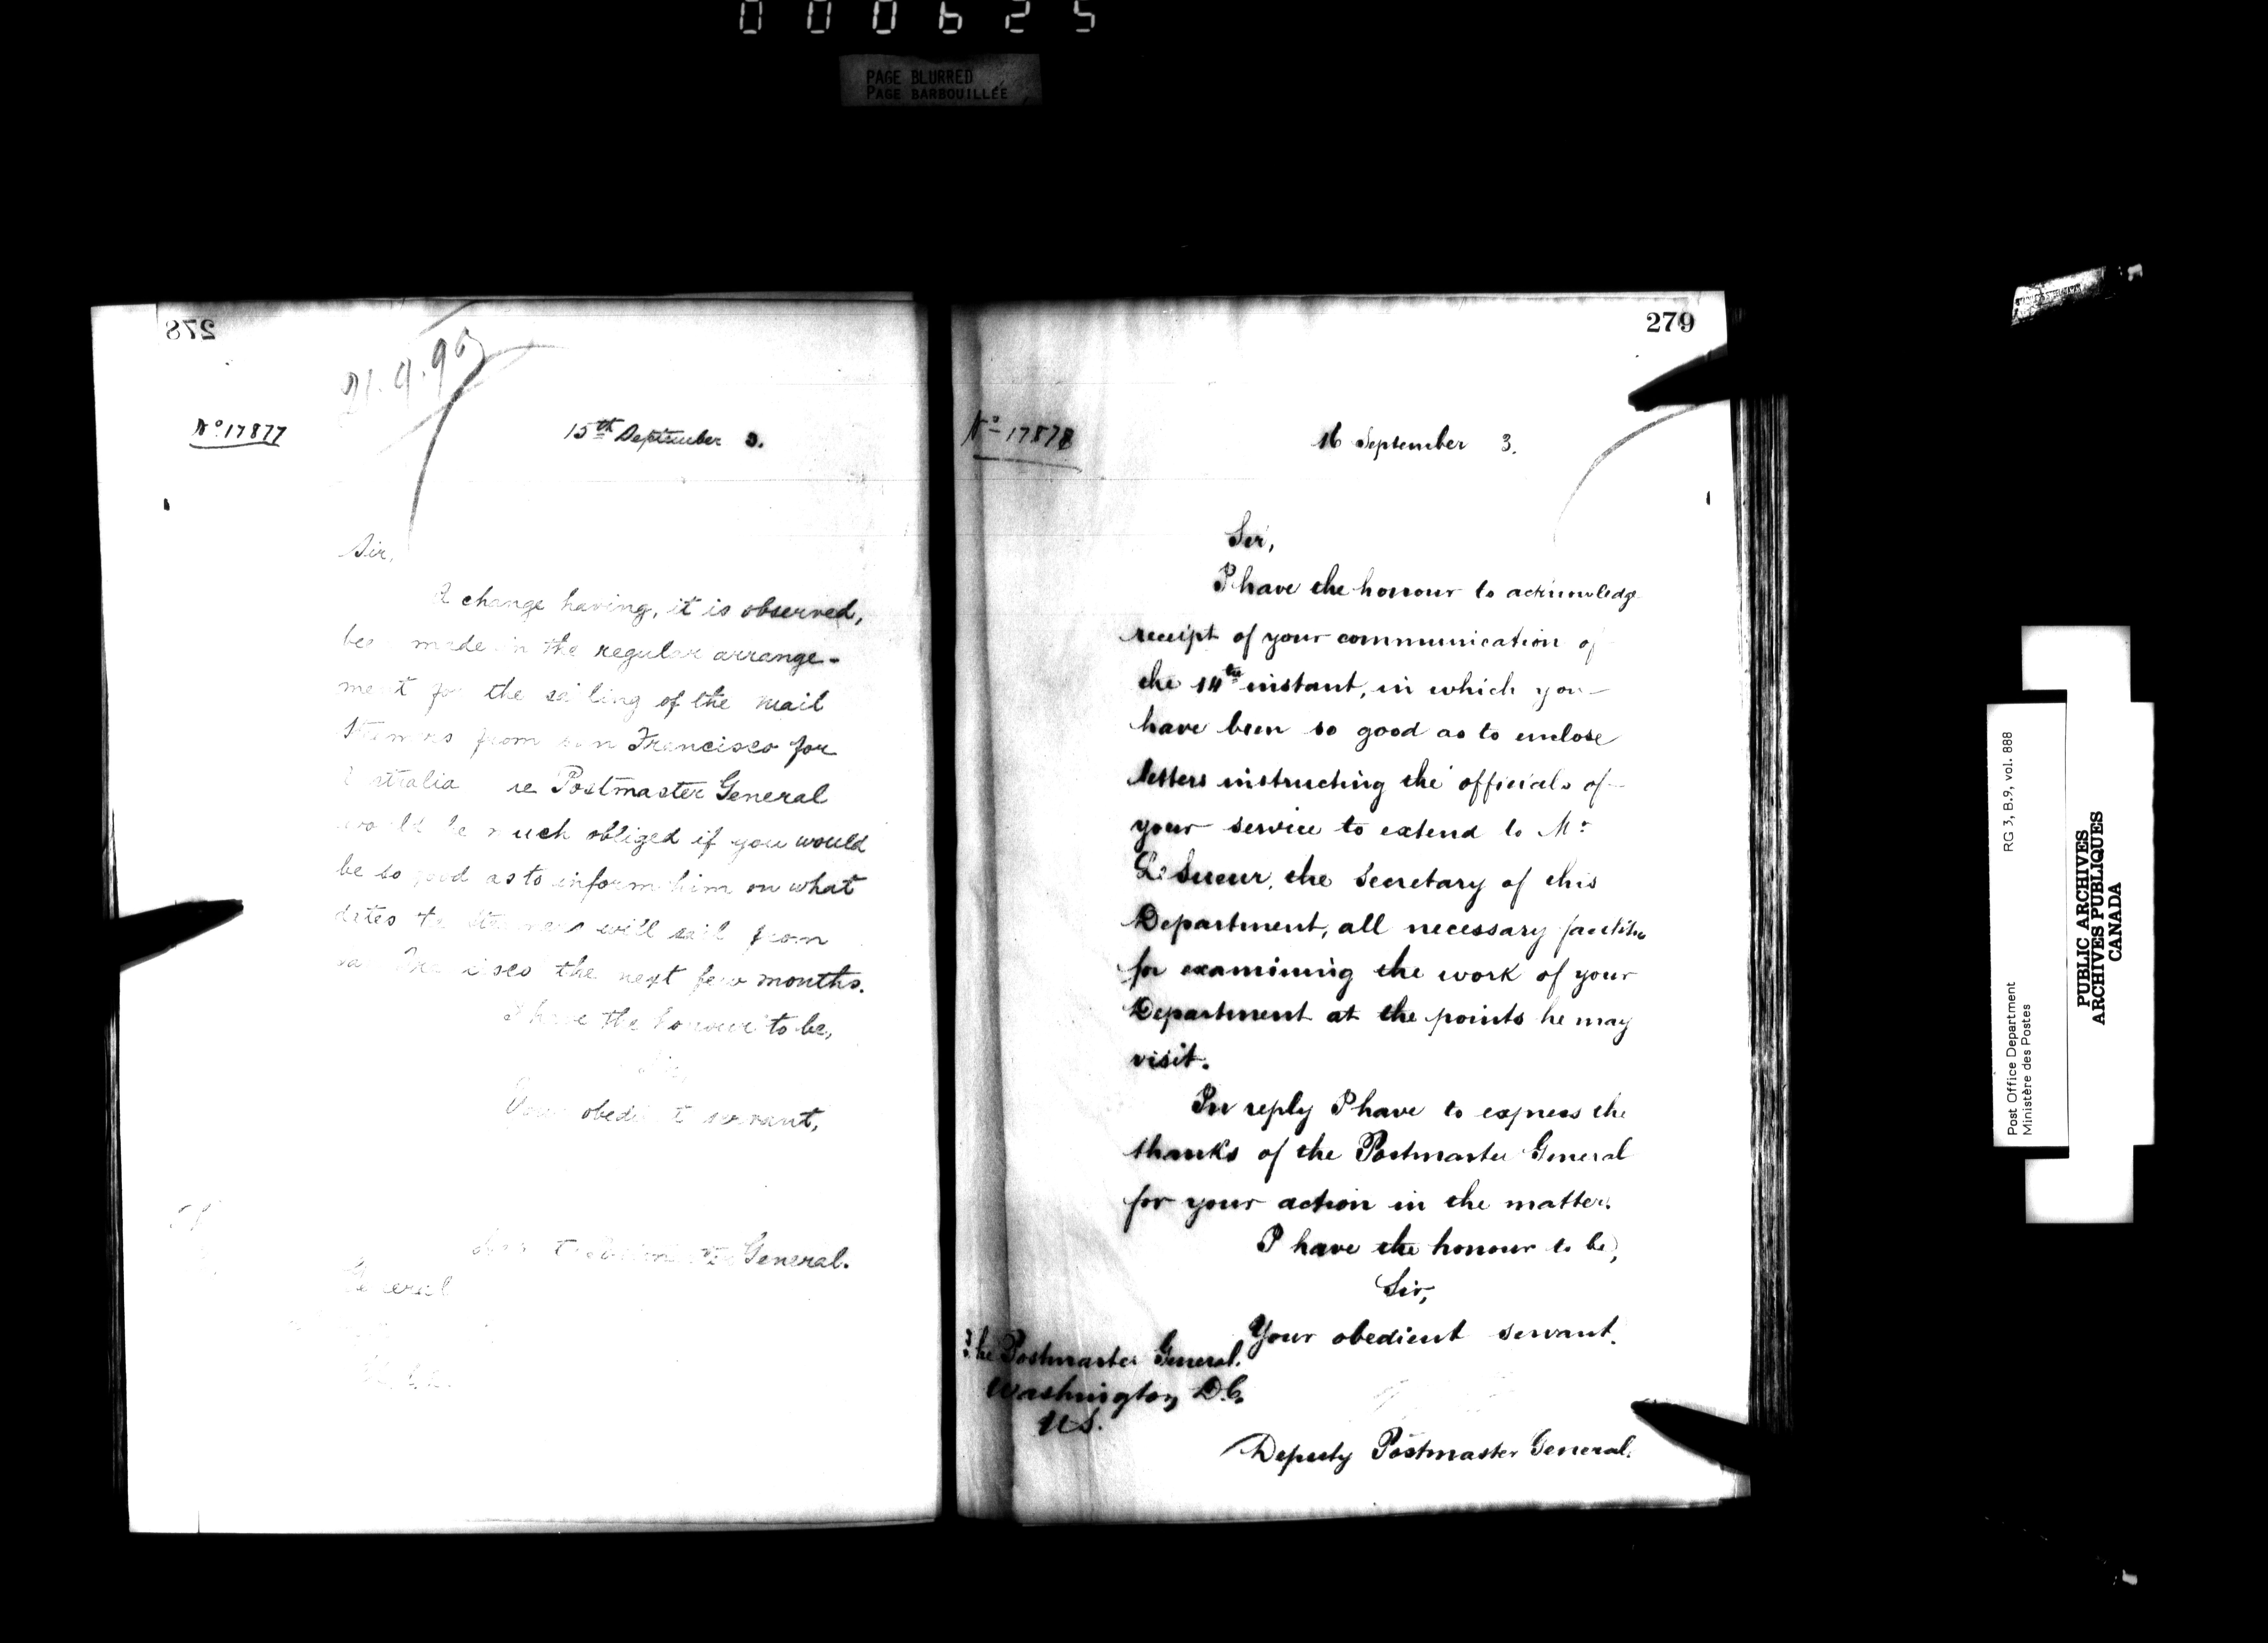 000625
PAGE BLURRED
PAGE BARBOUILLÉE
278
21.9.93
No 17877
15th September 3.
Sir,
A change having, it is observed,
been made in the regular arrange-
ment for the sailing of the mail
steamers from San Francisco for
Australia the Postmaster General
would be much obliged if you would
be so good as to inform him on what
dates the steamers will sail from
San Francisco the next few months.
I have the honour to be,
Sir,
Your obedient servant,
General.
General
279
No 17878
16 September 3.
Sir,
I have the honour to acknowledge
receipt of your communication of
the 14th instant, in which you
have been so good as to enclose
letters instructing the officials of
your service to extend to Mr
LeSueur, the Secretary of this
Department, all necessary facilities
for examining the work of your
Department at the points he may
visit.
In reply I have to express the
thanks of the Postmaster General
for your action in the matter.
I have the honour to be,
Sir,
Your obedient servant.
The Postmaster General.
Washington, D.C.
U.S.
Deputy Postmaster General.
Post Office Department
Ministère des Postes
RG 3, B.9, vol. 888
PUBLIC ARCHIVES
ARCHIVES PUBLIQUES
CANADA